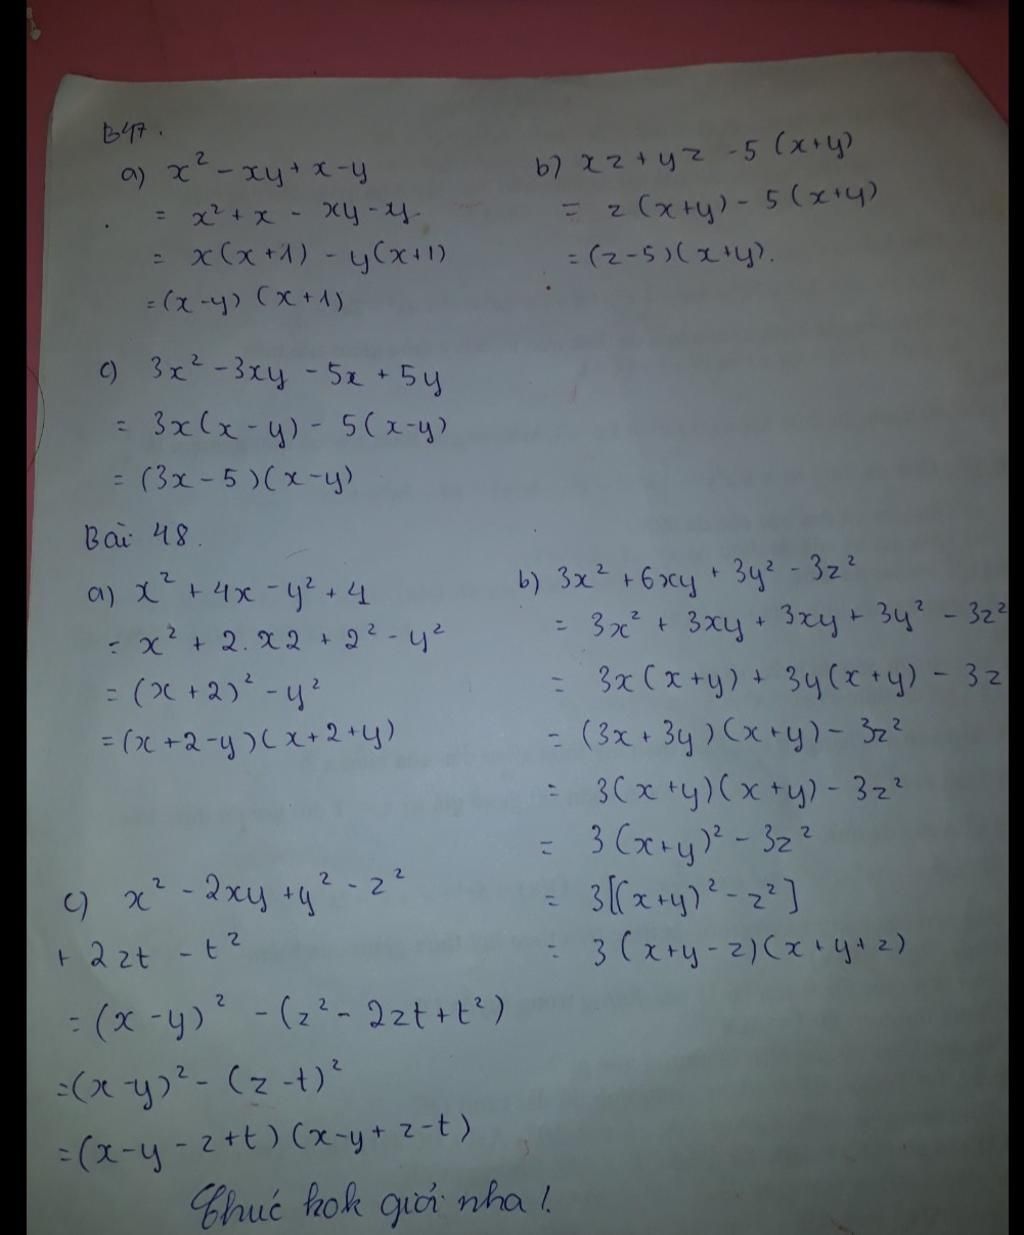 B47.
a) x² - xy + x - y
= x² + x - xy - y.
= x(x+1) - y(x+1)
= (x-y) (x+1)
b) xz + yz - 5 (x+y)
= z (x+y) - 5 (x+y)
= (z-5)(x+y).
c) 3x² - 3xy - 5x + 5y
= 3x(x-y) - 5(x-y)
= (3x-5)(x-y)
Bài 48.
a) x² + 4x - y² + 4
= x² + 2.x2 + 2² - y²
= (x+2)² - y²
= (x+2-y)(x+2+y)
b) 3x² + 6xy + 3y² - 3z²
= 3x² + 3xy + 3xy + 3y² - 3z²
= 3x(x+y) + 3y(x+y) - 3z
= (3x+3y)(x+y) - 3z²
= 3(x+y)(x+y) - 3z²
= 3(x+y)² - 3z²
= 3[(x+y)² - z²]
= 3(x+y-z)(x+y+z)
c) x² - 2xy + y² - z²
+ 2zt - t²
= (x-y)² - (z² - 2zt + t²)
= (x-y)² - (z-t)²
= (x-y-z+t)(x-y+z-t)
Chuć hok giỏi nha!